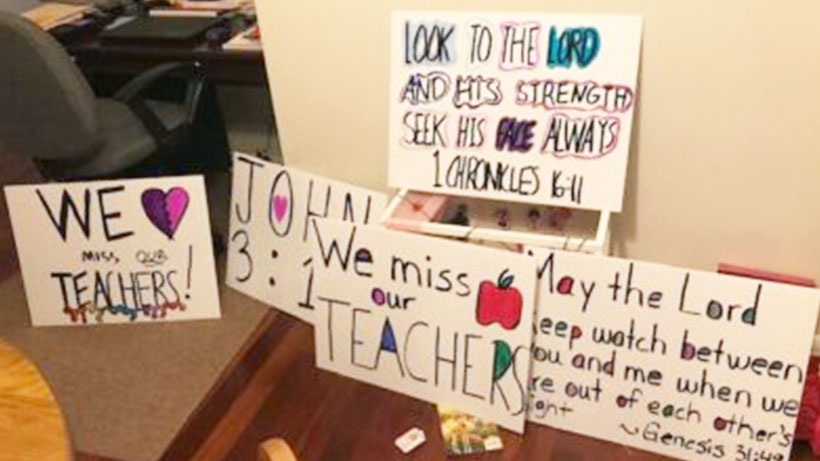 LOOK TO THE LORD
AND HIS STRENGTH
SEEK HIS FACE ALWAYS
1 CHRONICLES 16:11
WE
MISS OUR
TEACHERS!
JOHN
3:1
We miss
our
TEACHERS
May the Lord
eep watch between
ou and me when we
re out of each other's
ight
~Genesis 31:49